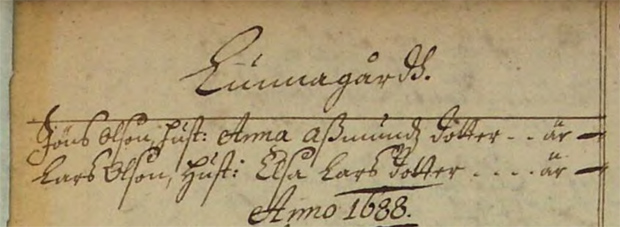 Lunnagårdh.
Jöns Olson, Hust: Anna Aßmundz dotter - - är -
Lars Olson, Hust: Elsa Lars dotter - - - - är -
Anno 1688.